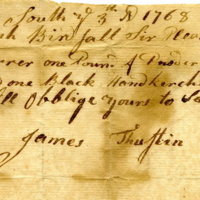 South ye 3th D 1768
Binfall Sir Pleas
one Pound of Powder
one Black Handkerch
Obblige yours to Sa
James Thustin